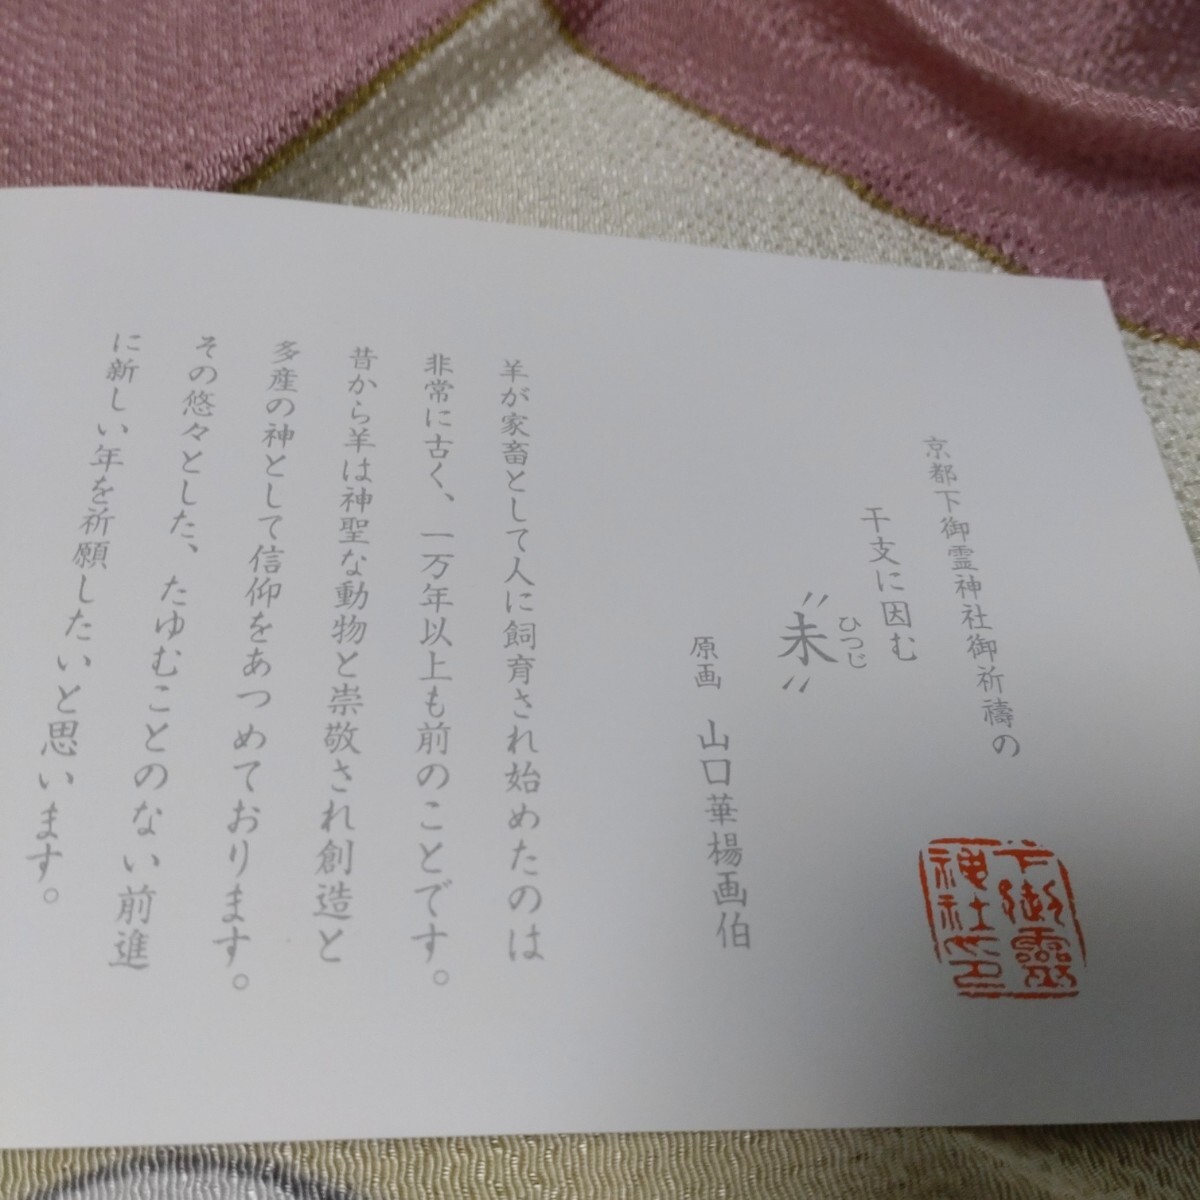 京都下御霊神社御祈禱の
干支に因む
〝未〟
ひつじ
原画 山口華楊画伯
羊が家畜として人に飼育され始めたのは
非常に古く、一万年以上も前のことです。
昔から羊は神聖な動物と崇敬され創造と
多産の神として信仰をあつめております。
その悠々とした、たゆむことのない前進
に新しい年を祈願したいと思います。
下御靈
神社之印